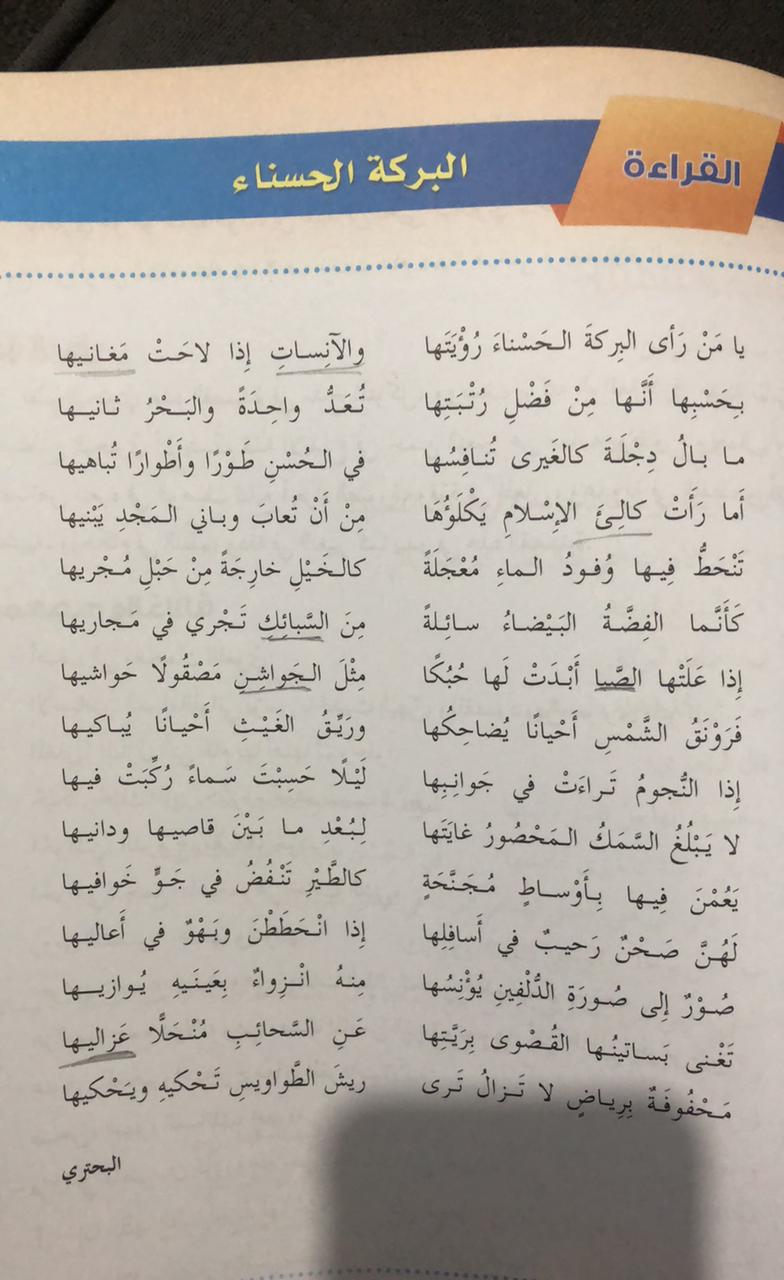 القراءة
البركة الحسناء
يا مَنْ رَأى البِركةَ الـحَسْناءَ رُؤْيَتَها والآنِساتِ إِذا لاحَتْ مَغانيها
بِحَسْبِها أَنَّها مِنْ فَضْلِ رُتْبَتِها تُعَدُّ واحِدَةً والبَحْرُ ثانيها
ما بالُ دِجْلَةَ كالغَيرى تُنافِسُها في الـحُسْنِ طَوْرًا وأَطْوارًا تُباهيها
أَما رَأَتْ كالِئَ الإِسْلامِ يَكْلَؤُهَا مِنْ أَنْ تُعابَ وباني المَجْدِ يَبْنيها
تَنْحَطُّ فيها وُفودُ الماءِ مُعْجَلَةً كالخَيْلِ خارِجَةً مِنْ حَبْلِ مُجْريها
كَأَنَّما الفِضَّةُ البَيْضاءُ سائِلةً مِنَ السَّبائِكِ تَجْري في مَجاريها
إِذا عَلَتْها الصَّبا أَبْدَتْ لَها حُبُكًا مِثْلَ الجَواشِنِ مَصْقُولًا حَواشيها
فَرَوْنَقُ الشَّمْسِ أَحْيانًا يُضاحِكُها ورَيِّقُ الغَيْثِ أَحْيانًا يُباكيها
إِذا النُّجومُ تَراءَتْ في جَوانِبِها لَيْلًا حَسِبْتَ سَماءً رُكِّبَتْ فيها
لا يَبْلُغُ السَّمَكُ المَحْصُورُ غايَتَها لِبُعْدِ ما بَيْنَ قاصيها ودانيها
يَعُمْنَ فِيها بِأَوْساطٍ مُجَنَّحَةٍ كالطَّيْرِ تَنْفُضُ في جَوٍّ خَوافيها
لَهُنَّ صَحْنٌ رَحيبٌ في أَسافِلِها إِذا انْحَطَطْنَ وبَهْوٌ في أَعاليها
صُوْرٌ إِلى صُورَةِ الدُّلْفِينِ يُؤْنِسُها مِنهُ انْزِواءٌ بِعَينَيهِ يُوازيها
تَغْنى بَساتينُها القُصْوى بِرَيَّتِها عَنِ السَّحائِبِ مُنْحَلًّا عَزاليها
مَحْفُوفَةٌ بِرِياضٍ لا تَزالُ تَرى ريشَ الطَّواويسِ تَحْكيهِ ويَحْكيها
البحتري